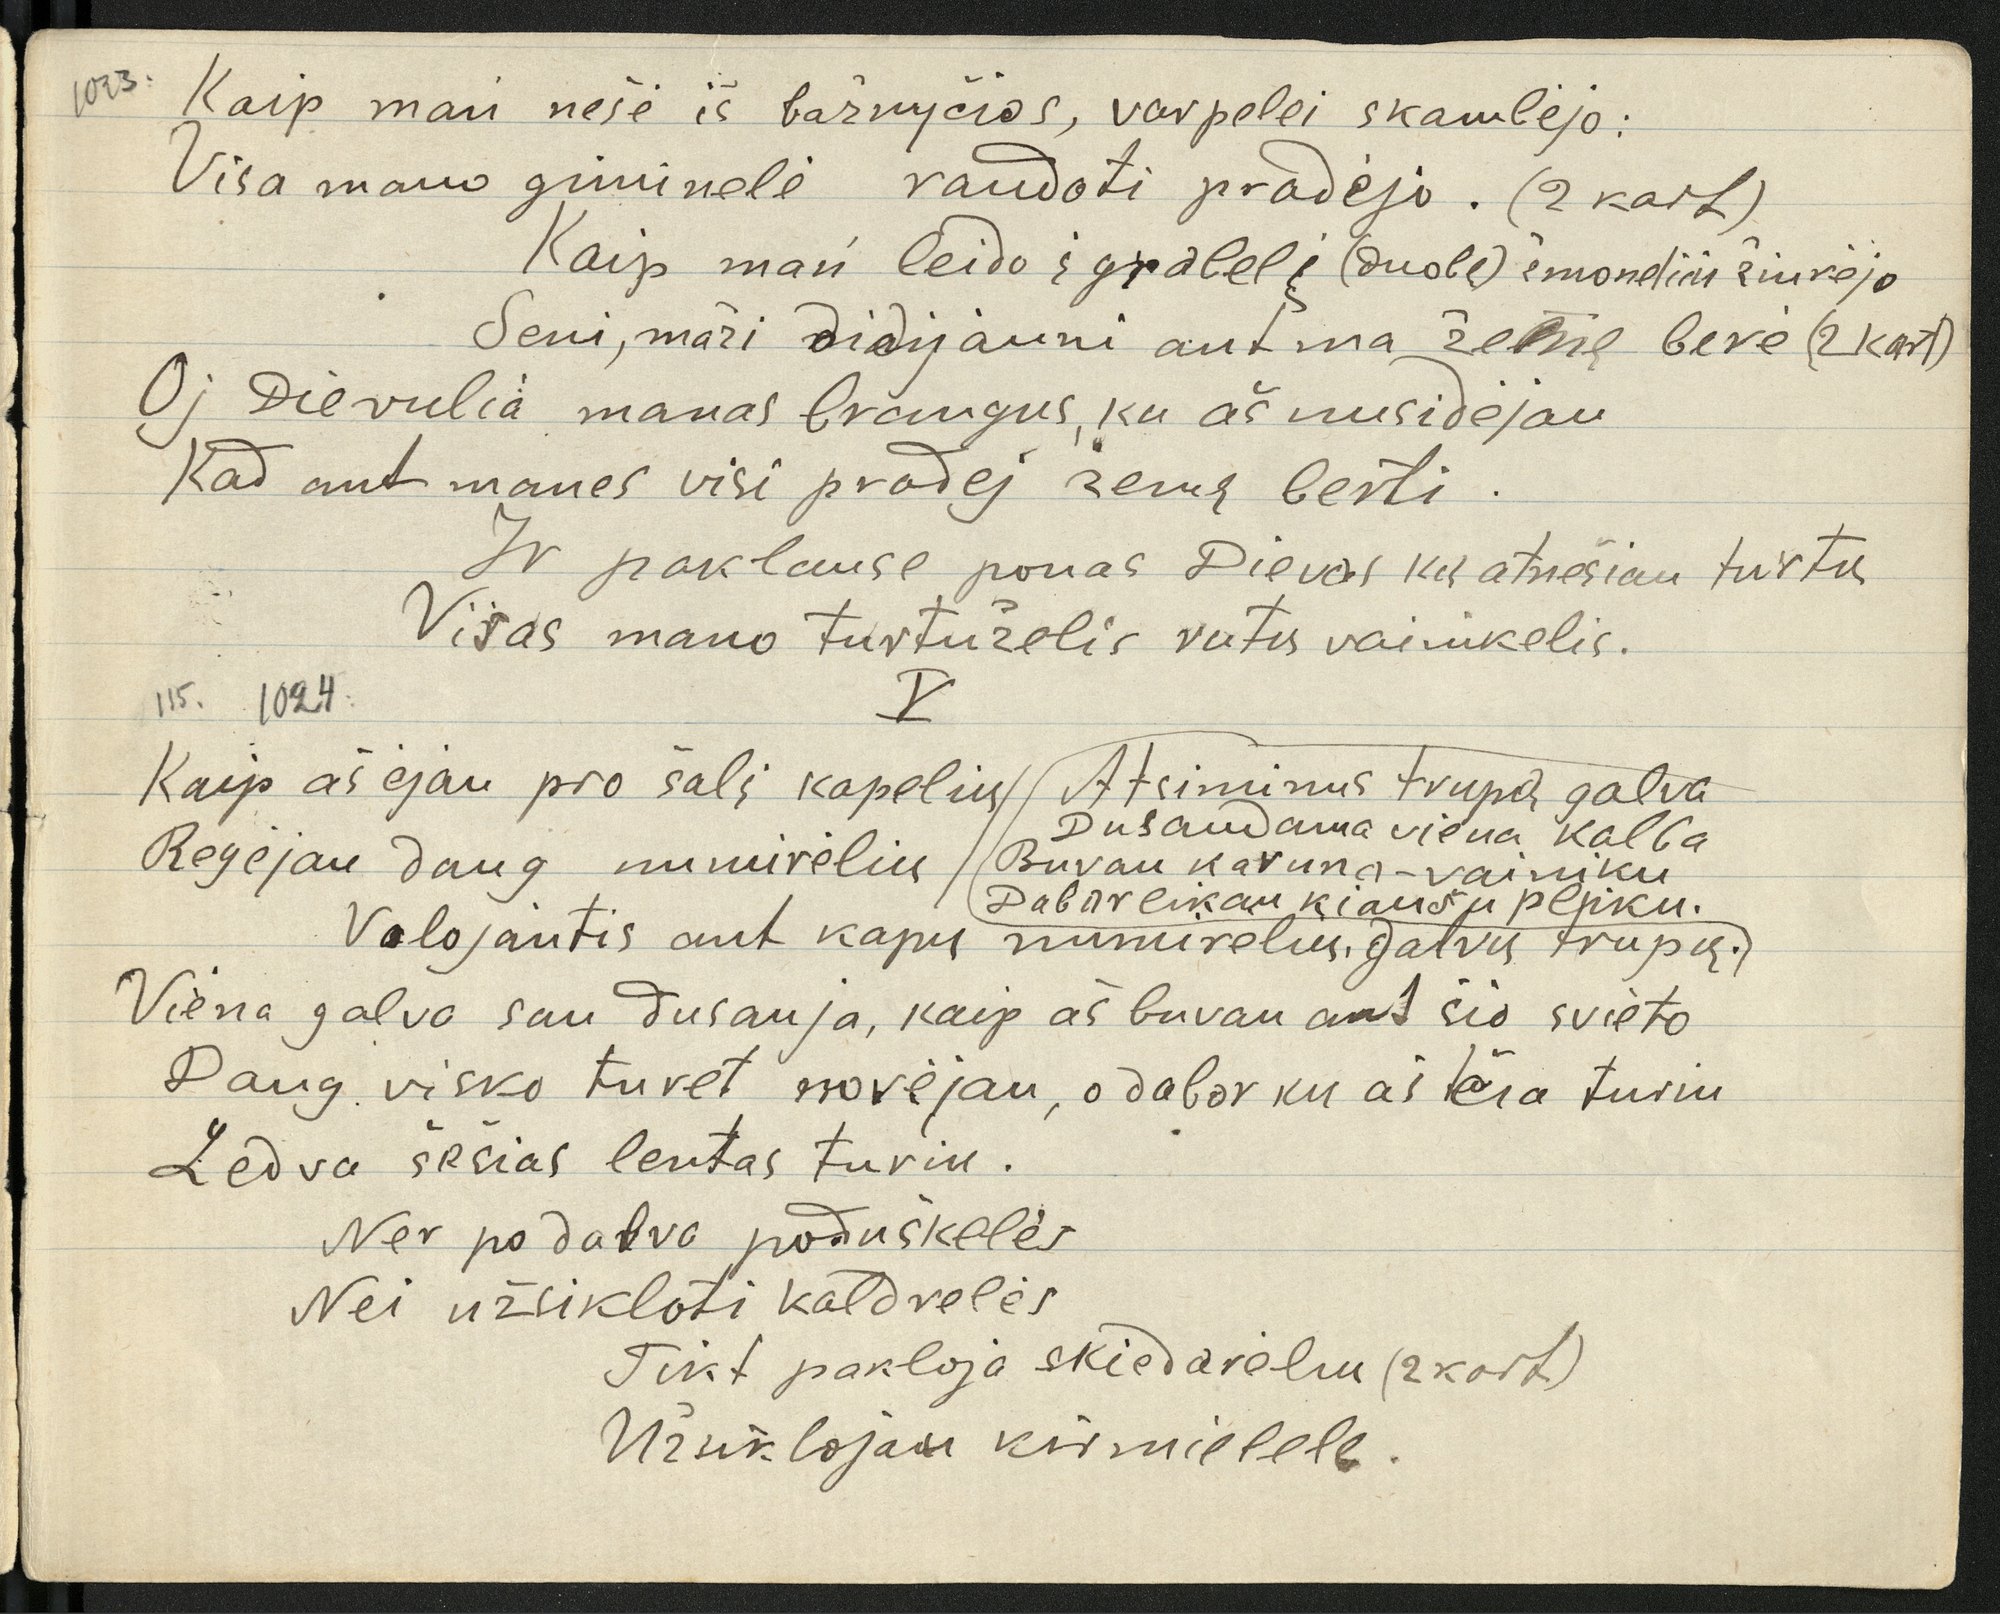 1023.
Kaip mań nešė iš bažnyčios, varpelei skambėjo:
Visa mano giminelė raudoti pradėjo. (2 kart)
Kaip mań leido į grabelį (duobę) žmonelių žiurėjo
Seni, maži didi jauni ant ma žemę berė (2 kart)
Oj Dievulia manas brangus, ku aš nusidėjau
Kad ant manes visi pradėj žemę berti.
Ir paklausė ponas Dievas kų atnešiau turtų
Visas mano turtuželis rutų vainikelis.
115. 1024.
V
Kaip aš ėjau pro šalį kapelių
Regėjau daug numirėlių
Atsiminus trupą galva
Dusaudama viena kalba
Buvau karuna-vainiku
Dabar likau kiaušu plyku.
Valojantis ant kapų numirėlių galvų trupų.
Viena galva sau dusauja, kaip aš buvau ant šio svieto
Daug visko turėt norėjau, o dabar ku aš čia turiu
Ledva šešias lentas turiu.
Ner po dalva poduškelės
Nei užsikloti kaldrelės
Tikt pakloja skiedarėlių (2 kart)
Užuklojau kirmielele.